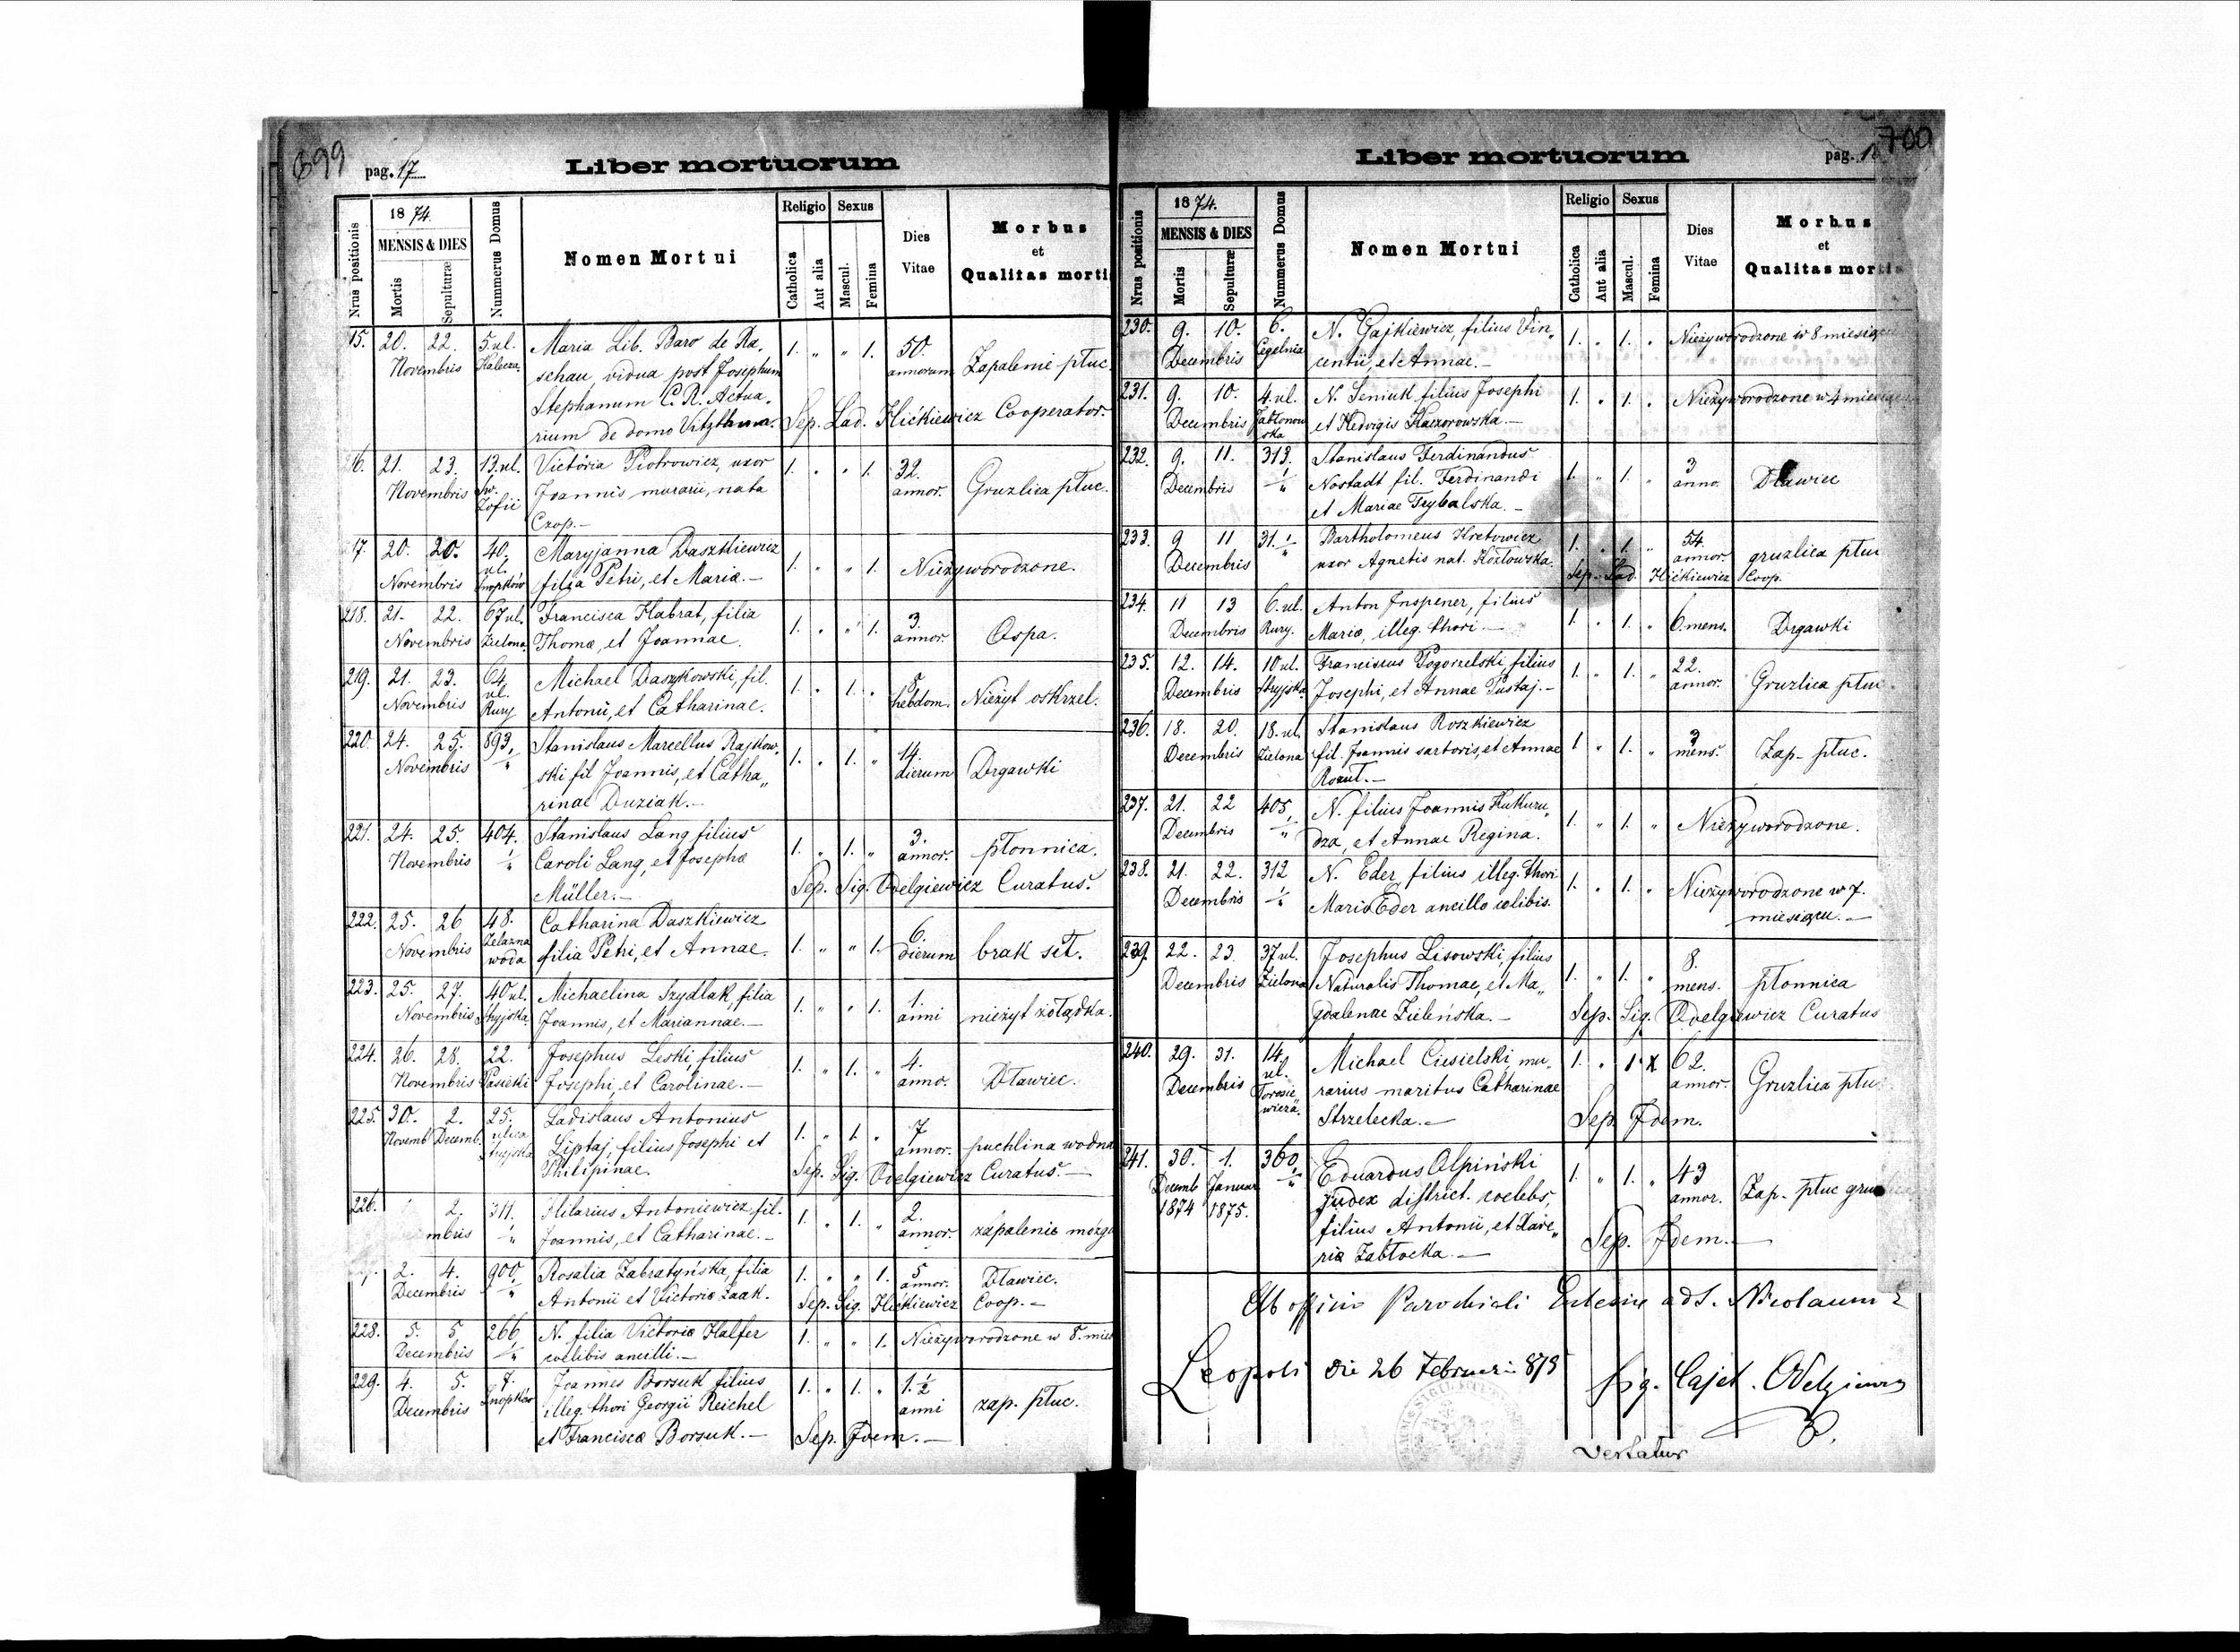 699
pag. 17
Liber mortuorum
Nrus positionis
1874.
MENSIS & DIES
Mortis
Sepulturæ
Nummerus Domus
Nomen Mortui
Religio
Catholica
Aut alia
Sexus
Mascul.
Femina
Dies
Vitae
Morbus
et
Qualitas morti
15. 20. 22. 5. ul. Maria Lib. Baro de Ra. 1. " " 1. 50. Zapalenie płuc.
Novembris schau, vidua post Josephum annorum
Stephanum C. R. Actua.
rium de domo Sep. Lad. Hićkiewicz Cooperator.
16. 21. 23. 13. ul. Victoria Piotrowicz, uxor 1. " " 1. 32. Gruzlica płuc.
Novembris Św. Zofii Joannis murarii, nata annor.
Czop.-
17. 20. 20. 40. Maryjanna Daszkiewicz 1. " " 1. Nieżyworodzone.
Novembris ul. Snopków filia Petri, et Mariæ.-
218. 21. 22. 67 ul. Francisca Habrat, filia 1. " " 1. 3. Ospa.
Novembris Zielona Thomæ, et Joannae. annor.
219. 21. 23. 64 Michael Daszkowski, fil. 1. " 1. " 8 Nieżyt oskrzel.
Novembris ul. Rury Antonii, et Catharinae. hebdom.
220. 24. 25. 893. Stanislaus Marcellus Rajkow. 1. " 1. " 14. Drgawki
Novembris ski fil Joannis, et Catha„ dierum
rinae Duziak.-
221. 24. 25. 404. Stanislaus Lang filius 1. " 1. " 3. płonnica.
Novembris Caroli Lang, et Josephæ annor.
Müller.- Sep. Sig. Odelgiewicz Curatus.
222. 25. 26 48. Catharina Daszkiewicz 1. " " 1. 6. brak sił.
Novembris Żelazna woda filia Petri, et Annae. dierum
223. 25. 27. 40 ul. Michaelina Szydlak, filia 1. " " 1. 1. nieżyt żołądka.
Novembris Stryjska Joannis, et Mariannae.- anni
224. 26. 28. 22. Josephus Leski, filius 1. " 1. " 4. Dławiec.
Novembris Pasieki Josephi, et Carolinae.- anno.
225. 30. 2. 25. Ladislaus Antonius 1. " 1. " 7 puchlina wodna
Novemb. Decemb. ulica Stryjska Liptaj, filius Josephi et annor.
Philipinae. Sep. Sig. Odelgiewicz Curatus.-
226. 2. 311. Hilarius Antoniewicz fil. 1. " 1. " 2. zapalenie mózgu
mbris Joannis, et Catharinae.- annor.
2. 4. 900. Rosalia Zabratyńska, filia 1. " " 1. 5 Dławiec.
Decembris Antonii et Victoriæ Żaak. annor.
Sep. Sig. Hićkiewicz Coop.-
228. 5. 5 266 N. filia Victoriæ Halfer 1. " " 1. Nieżyworodzone w 8. mies
Decembris coelibis ancilli.-
229. 4. 5. 7. Joannes Borsuk filius 1. " 1. " 1. ½ zap. płuc.
Decembris Snopków illeg. thori Georgii Reichel anni
et Franciscæ Borsuk.- Sep. Idem.-
700
Liber mortuorum
pag.
Nrus positionis
1874.
MENSIS & DIES
Mortis
Sepulturæ
Nummerus Domus
Nomen Mortui
Religio
Catholica
Aut alia
Sexus
Mascul.
Femina
Dies
Vitae
Morbus
et
Qualitas mortis
230. 9. 10. 6. N. Gajkiewicz, filius Vin„ 1. " 1. " Nieżyworodzone w 8 miesiącu
Decembris Cegelnia centii, et Annae.-
231. 9. 10. 4. ul. N. Seniuk filius Josephi 1. " 1. " Nieżyworodzone w 4 miesiącu
Decembris Jabłonowska et Hedvigis Kaczorowska.-
232. 9. 11. 313. Stanislaus Ferdinandus 1. " 1. " 3 Dławiec
Decembris Nostadt fil. Ferdinandi anno.
et Mariae Trybalska.-
233. 9 11 31. Bartholomeus Kretowicz 1. " 1. " 54. gruzlica płuc
Decembris uxor Agnetis nat. Kozłowska annor.
Sep. Lad. Hićkiewicz Coop.
234. 11 13 6. ul. Anton Inspener, filius 1. " 1. " 6. mens. Drgawki
Decembris Rury. Mariæ, illeg. thori.-
235. 12. 14. 10 ul. Franciscus Pogorzelski, filius 1. " 1. " 22. Gruzlica płuc
Decembris Stryjska. Josephi, et Annae Pustaj.- annor.
236. 18. 20. 18. ul. Stanislaus Roszkiewicz 1 " 1. " 3 Zap- płuc.
Decembris Zielona fil. Joannis sartoris, et Annae mens.
237. 21. 22 405, N. filius Joannis Kukuru„ 1. " 1. " Nieżyworodzone.
Decembris dza, et Annae Regina.
238. 21. 22. 312 N. Eder filius illeg. thori 1. " 1. " Nieżyworodzone w 7.
Decembris Mariæ Eder ancillo cœlibis. miesiącu.-
239. 22. 23. 37 ul. Josephus Lisowski, filius 1. " 1. " 8. płonnica
Decembris Zielona Naturalis Thomae, et Ma„ mens.
gdalenae Zieleńska.- Sep. Sig. Odelgiewicz Curatus
240. 29. 31. 14 Michael Ciesielski, mu„ 1. " 1 " x 62. Gruzlica płuc
Decembris ul. Torosiewicza. rarius maritus Catharinae annor.
Strzelecka.- Sep. Idem.
241. 30. 1. 360, Eduardus Olpiński 1. " 1. " 43 Zap- płuc
Decemb Januar judex district. coelebs, annor.
1874 1875. filius Antonii, et Xave„
riæ Zabłocka.- Sep. Idem.-
Ab officio Parochiali ad S. Nicolaum
Leopoli die 26 Februarii 875
Sig. Cajet. Odelgiewicz
Vertatur